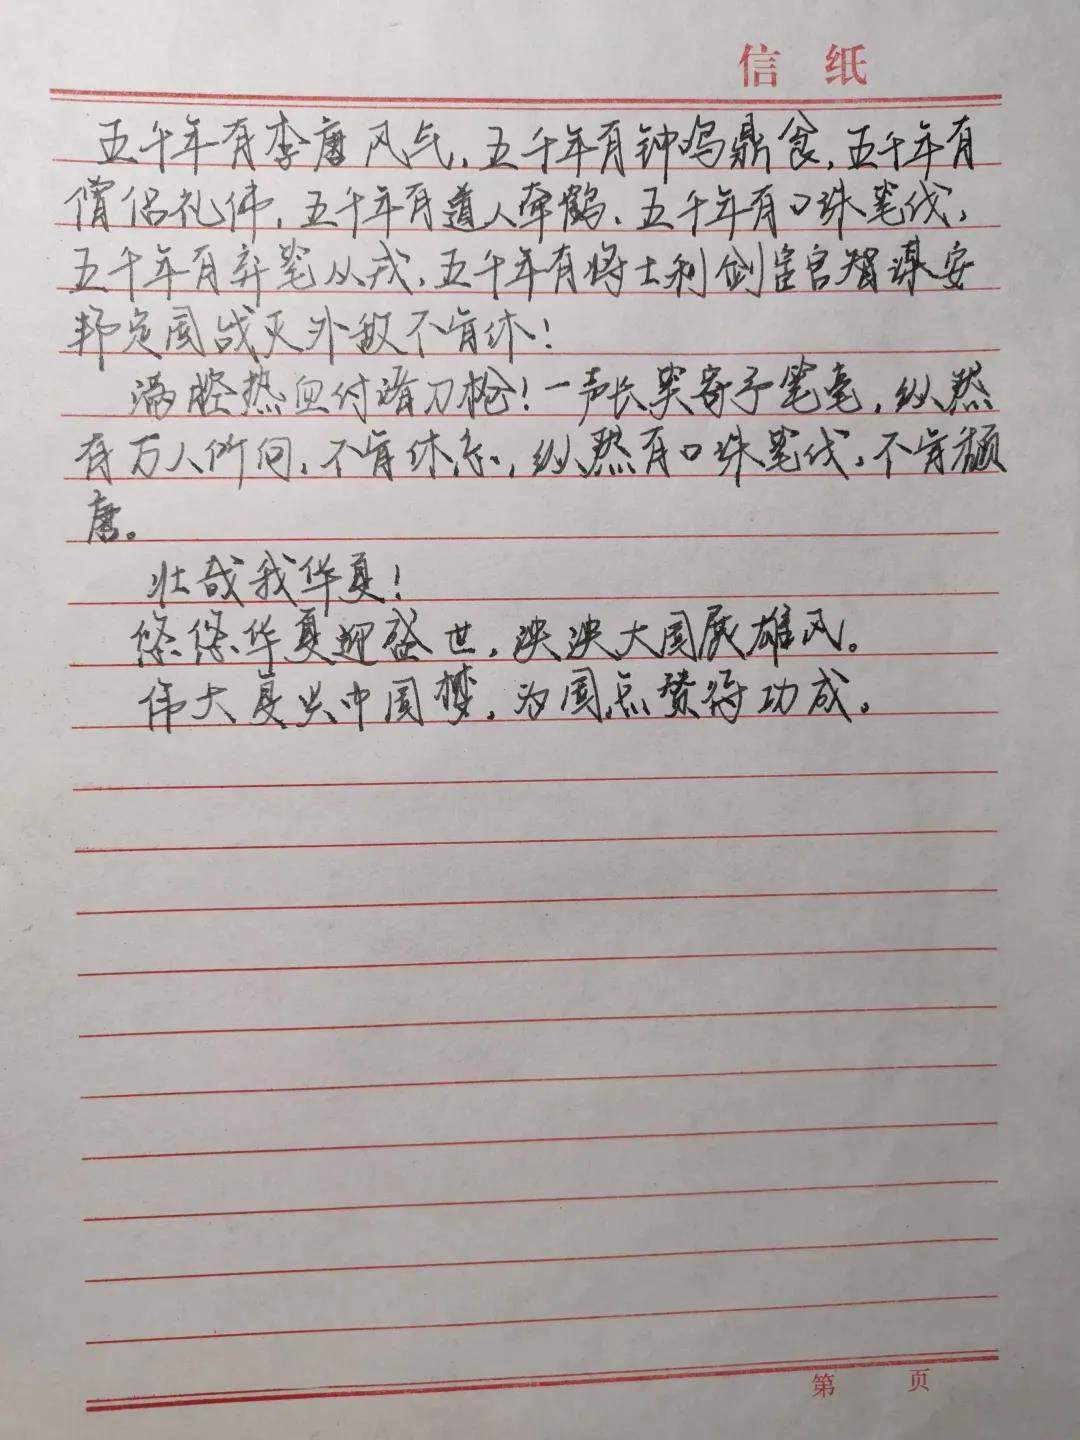 信纸
五千年有李唐风气，五千年有钟鸣鼎食，五千年有
僧侣礼佛，五千年有道人牵鹤、五千年有口珠笔伐，
五千年有弃笔从戎，五千年有将士利剑宦官智谋安
邦定国战灭外敌不肯休！
满腔热血付诸刀枪！一声长哭寄予笔毫，纵然
有万人所向，不肯休杀，纵然有口珠笔伐，不肯颓
唐。
壮哉我华夏！
悠悠华夏迎盛世，泱泱大国展雄风。
伟大复兴中国梦，为国点赞待功成。
第 页